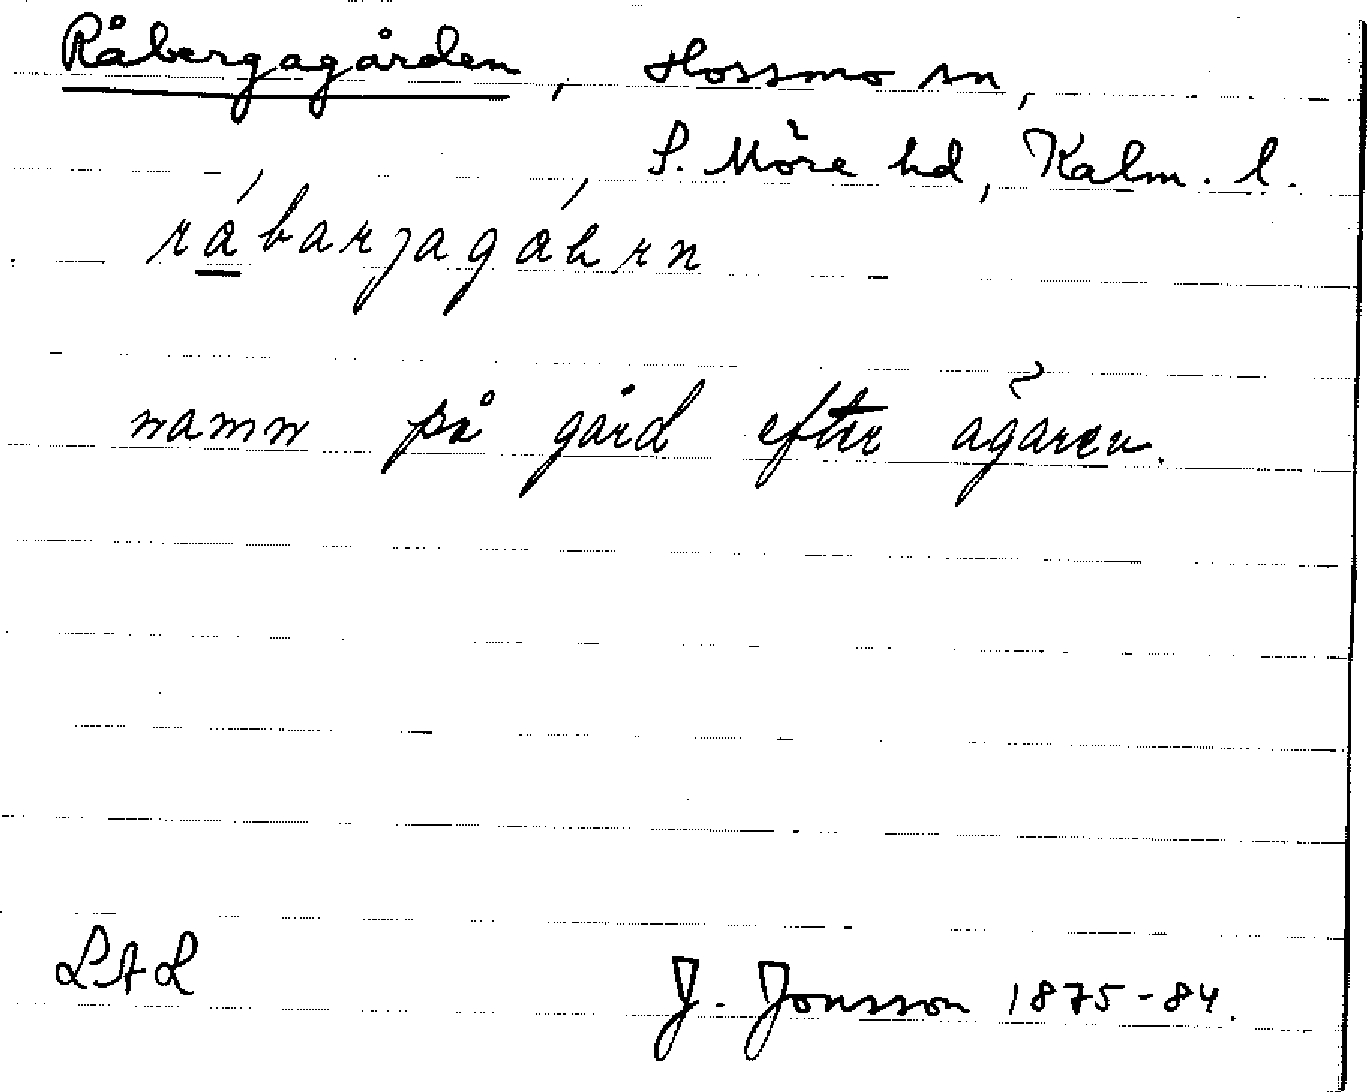 Råbergagården, Hossmo sn,
S. Möre hd, Kalm. l.
namn på gård efter ägaren.
LAL
J. Jonsson 1875-84.